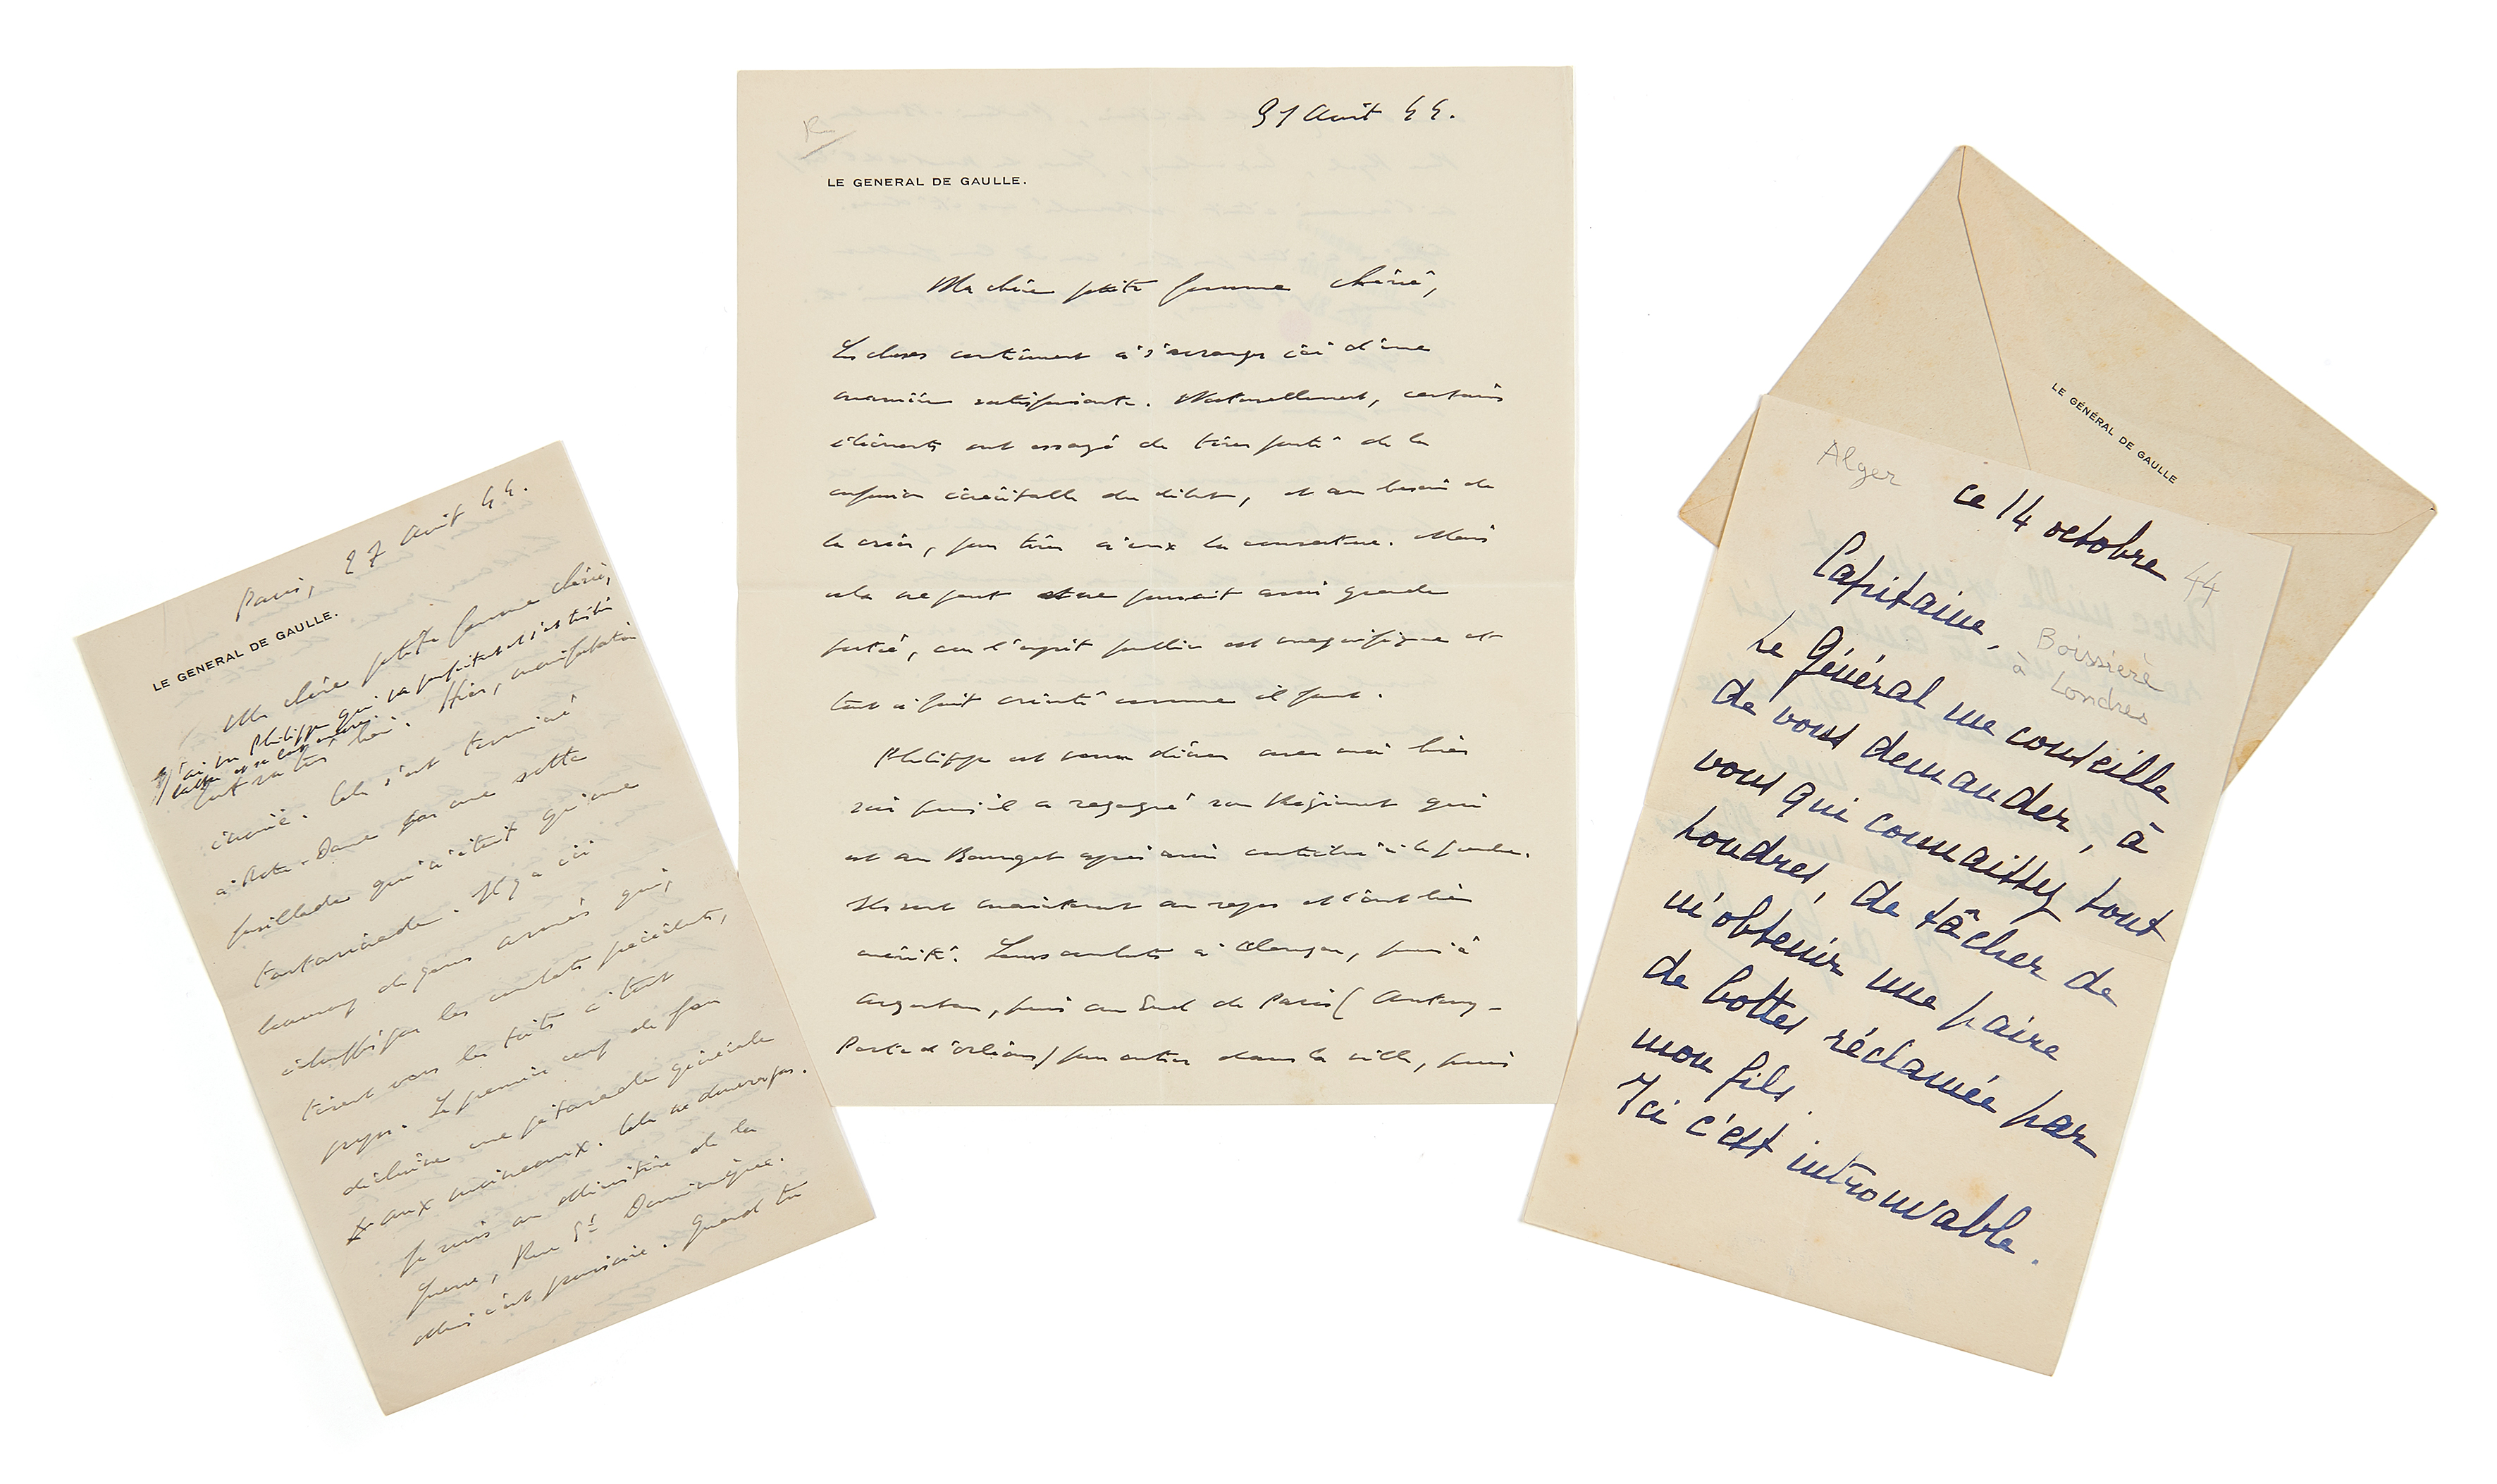 Paris, 27 Août 44.
LE GENERAL DE GAULLE.
Ma chère petite femme chérie,
J'ai vu Philippe qui va parfaitement et s'est très bien
battu
Tout va très bien. Hier, manifestation
inouïe. Cela s'est terminé
à Notre-Dame par une sorte
fusillade qui n'était qu'une
tartarinade. Il y a ici
beaucoup de gens armés qui,
échauffés par les combats précédents,
tirent vers les toits à tout
propos. Le premier coup de feu
déclenche une pétarade générale
aux moineaux. Cela ne durera pas.
Je suis au Ministère de la
Guerre, Rue St Dominique.
Mais c'est provisoire. Quand tu
31 Août 44.
LE GENERAL DE GAULLE.
Ma chère petite femme chérie,
Les choses continuent à s'arranger ici d'une
manière satisfaisante. Naturellement, certains
éléments ont essayé de tirer parti de la
confusion inévitable du début, et au besoin de
la créer, pour tirer à eux la couverture. Mais
cela ne peut et ne pourrait avoir grande
portée, car l'esprit public est magnifique et
tout à fait orienté comme il faut.
Philippe est venu dîner avec moi hier
soir puis il a regagné son Régiment qui
est au Bourget après avoir contribué à le prendre.
Ils sont maintenant au repos et l'ont bien
mérité. Leurs combats à Alençon, puis à
Argentan, puis au Sud de Paris (Antony -
Porte d'Orléans) pour entrer dans la ville, puis
LE GÉNÉRAL DE GAULLE
Alger
ce 14 octobre 44
Capitaine,
Boissierè
à Londres
Le Général me conseille
de vous demander, à
vous qui connaissez tout
Londres, de tâcher de
m'obtenir une paire
de bottes réclamée par
mon fils.
Ici c'est introuvable.